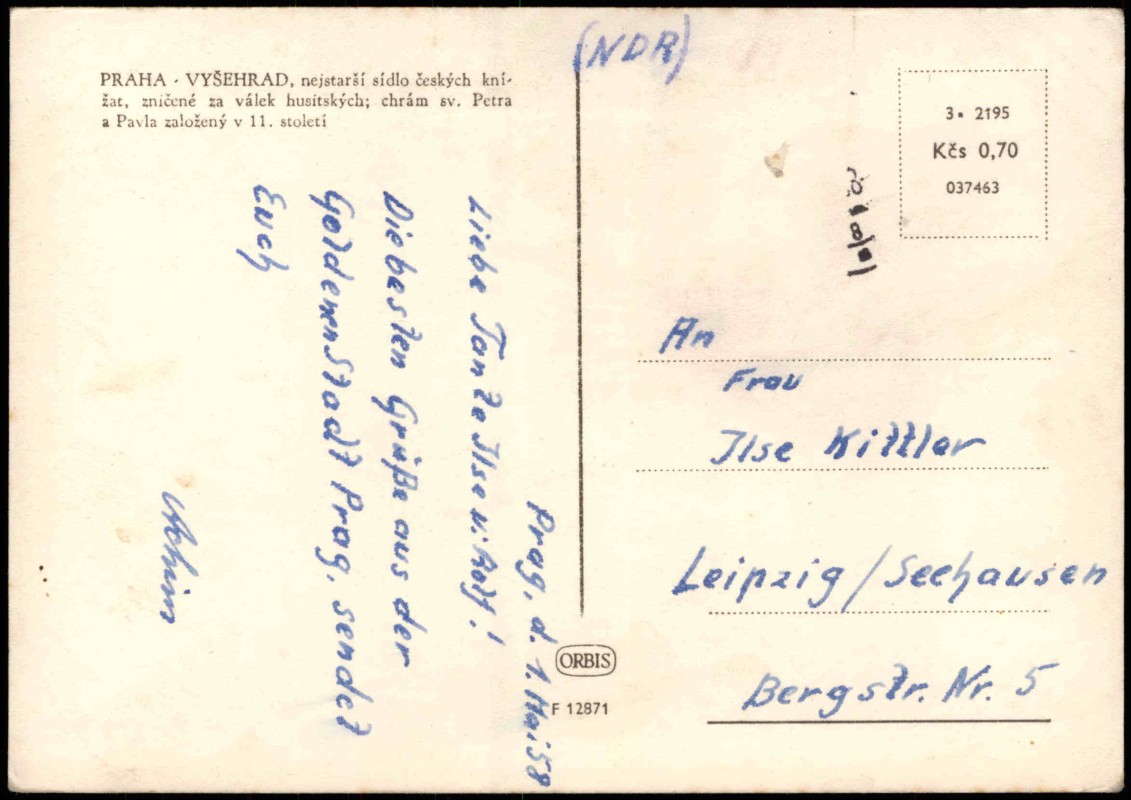 PRAHA - VYŠEHRAD, nejstarší sídlo českých kní-
žat, zničené za válek husitských; chrám sv. Petra
a Pavla založený v 11. století
Prag, d. 1. Mai 58
Liebe Tante Ilse u. Rolf!
Die besten Grüße aus der
Goldenen Stadt Prag, sendet
Euch
Achim
(NDR)
3 • 2195
Kčs 0,70
037463
An
Frau
Ilse Kittler
Leipzig / Seehausen
Bergstr. Nr. 5
ORBIS
F 12871